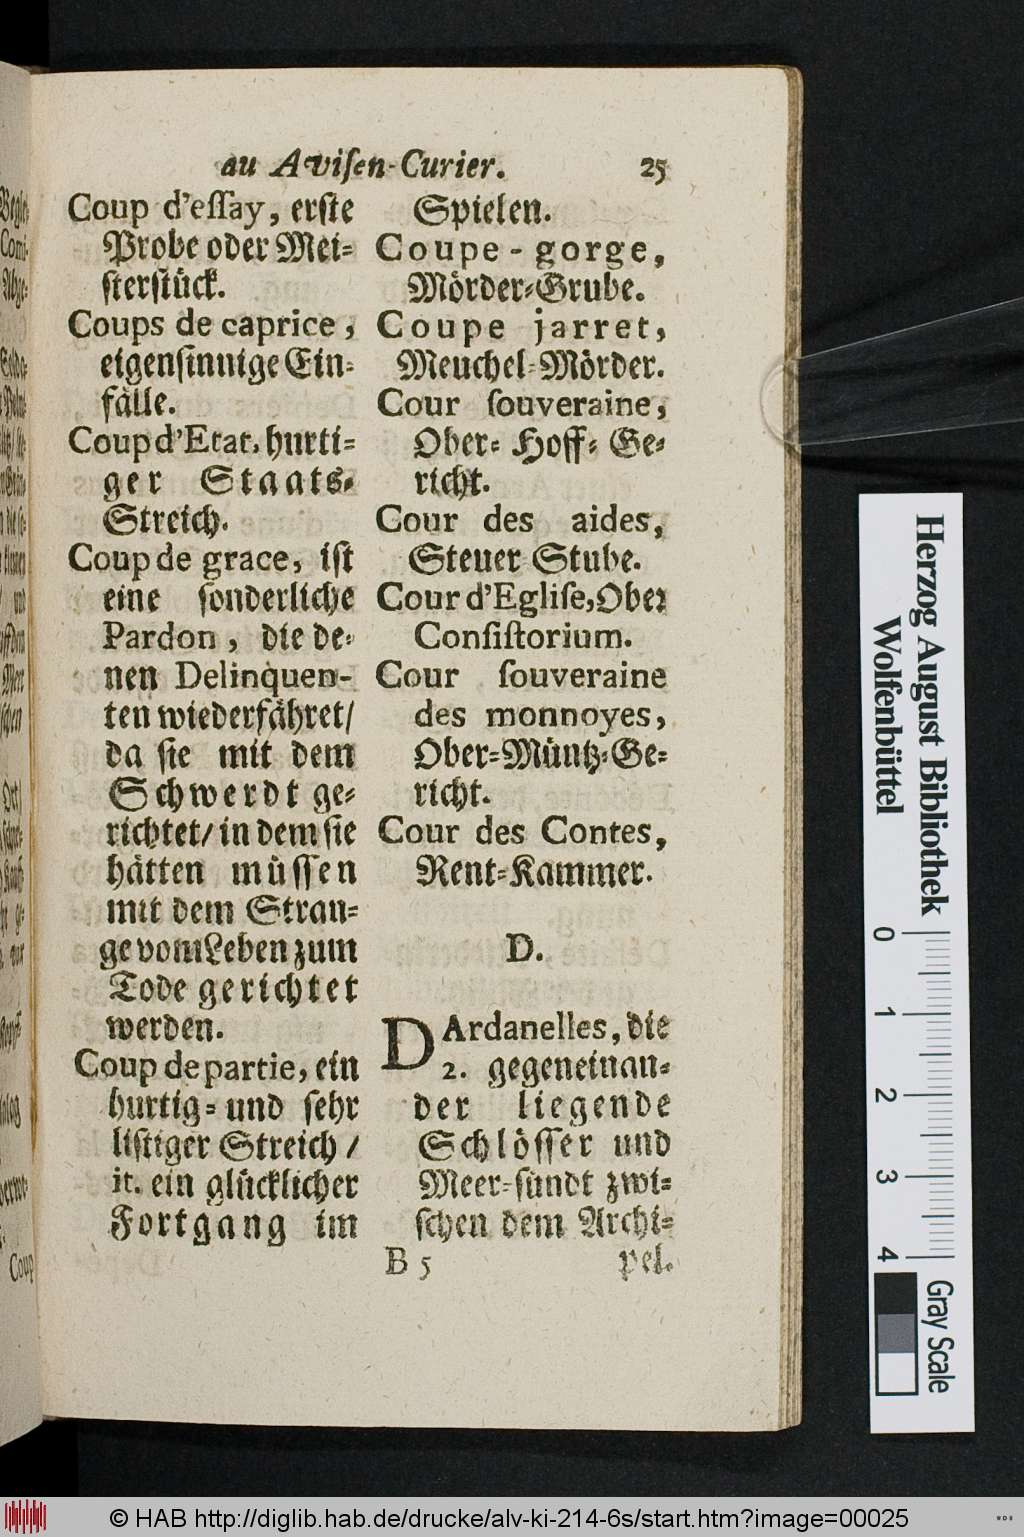 au Aviſen-Curier. 25
Coup d'eſſay, erſte
Probe oder Mei-
ſterſtück.
Coups de caprice,
eigenſinnige Ein-
fälle.
Coup d'Etat, hurti-
ger Staats-
Streich.
Coup de grace, iſt
eine ſonderliche
Pardon, die de-
nen Delinquen-
ten wiederfähret/
da ſie mit dem
Schwerdt ge-
richtet/ in dem ſie
hätten müſſen
mit dem Stran-
ge vom Leben zum
Tode gerichtet
werden.
Coup de partie, ein
hurtig- und ſehr
liſtiger Streich /
it. ein glücklicher
Fortgang im
Spielen.
Coupe-gorge,
Mörder-Grube.
Coupe jarret,
Meuchel-Mörder.
Cour ſouveraine,
Ober-Hoff-Ge-
richt.
Cour des aides,
Steuer Stube.
Cour d'Egliſe, Ober
Conſiſtorium.
Cour ſouveraine
des monnoyes,
Ober-Müntz-Ge-
richt.
Cour des Contes,
Rent-Kammer.
D.
DArdanelles, die
2. gegeneinan-
der liegende
Schlöſſer und
Meer-ſundt zwi-
ſchen dem Archi-
B 5 pel.
Coup
Herzog August Bibliothek
Wolfenbüttel
0 1 2 3 4
Gray Scale
© HAB http://diglib.hab.de/drucke/alv-ki-214-6s/start.htm?image=00025